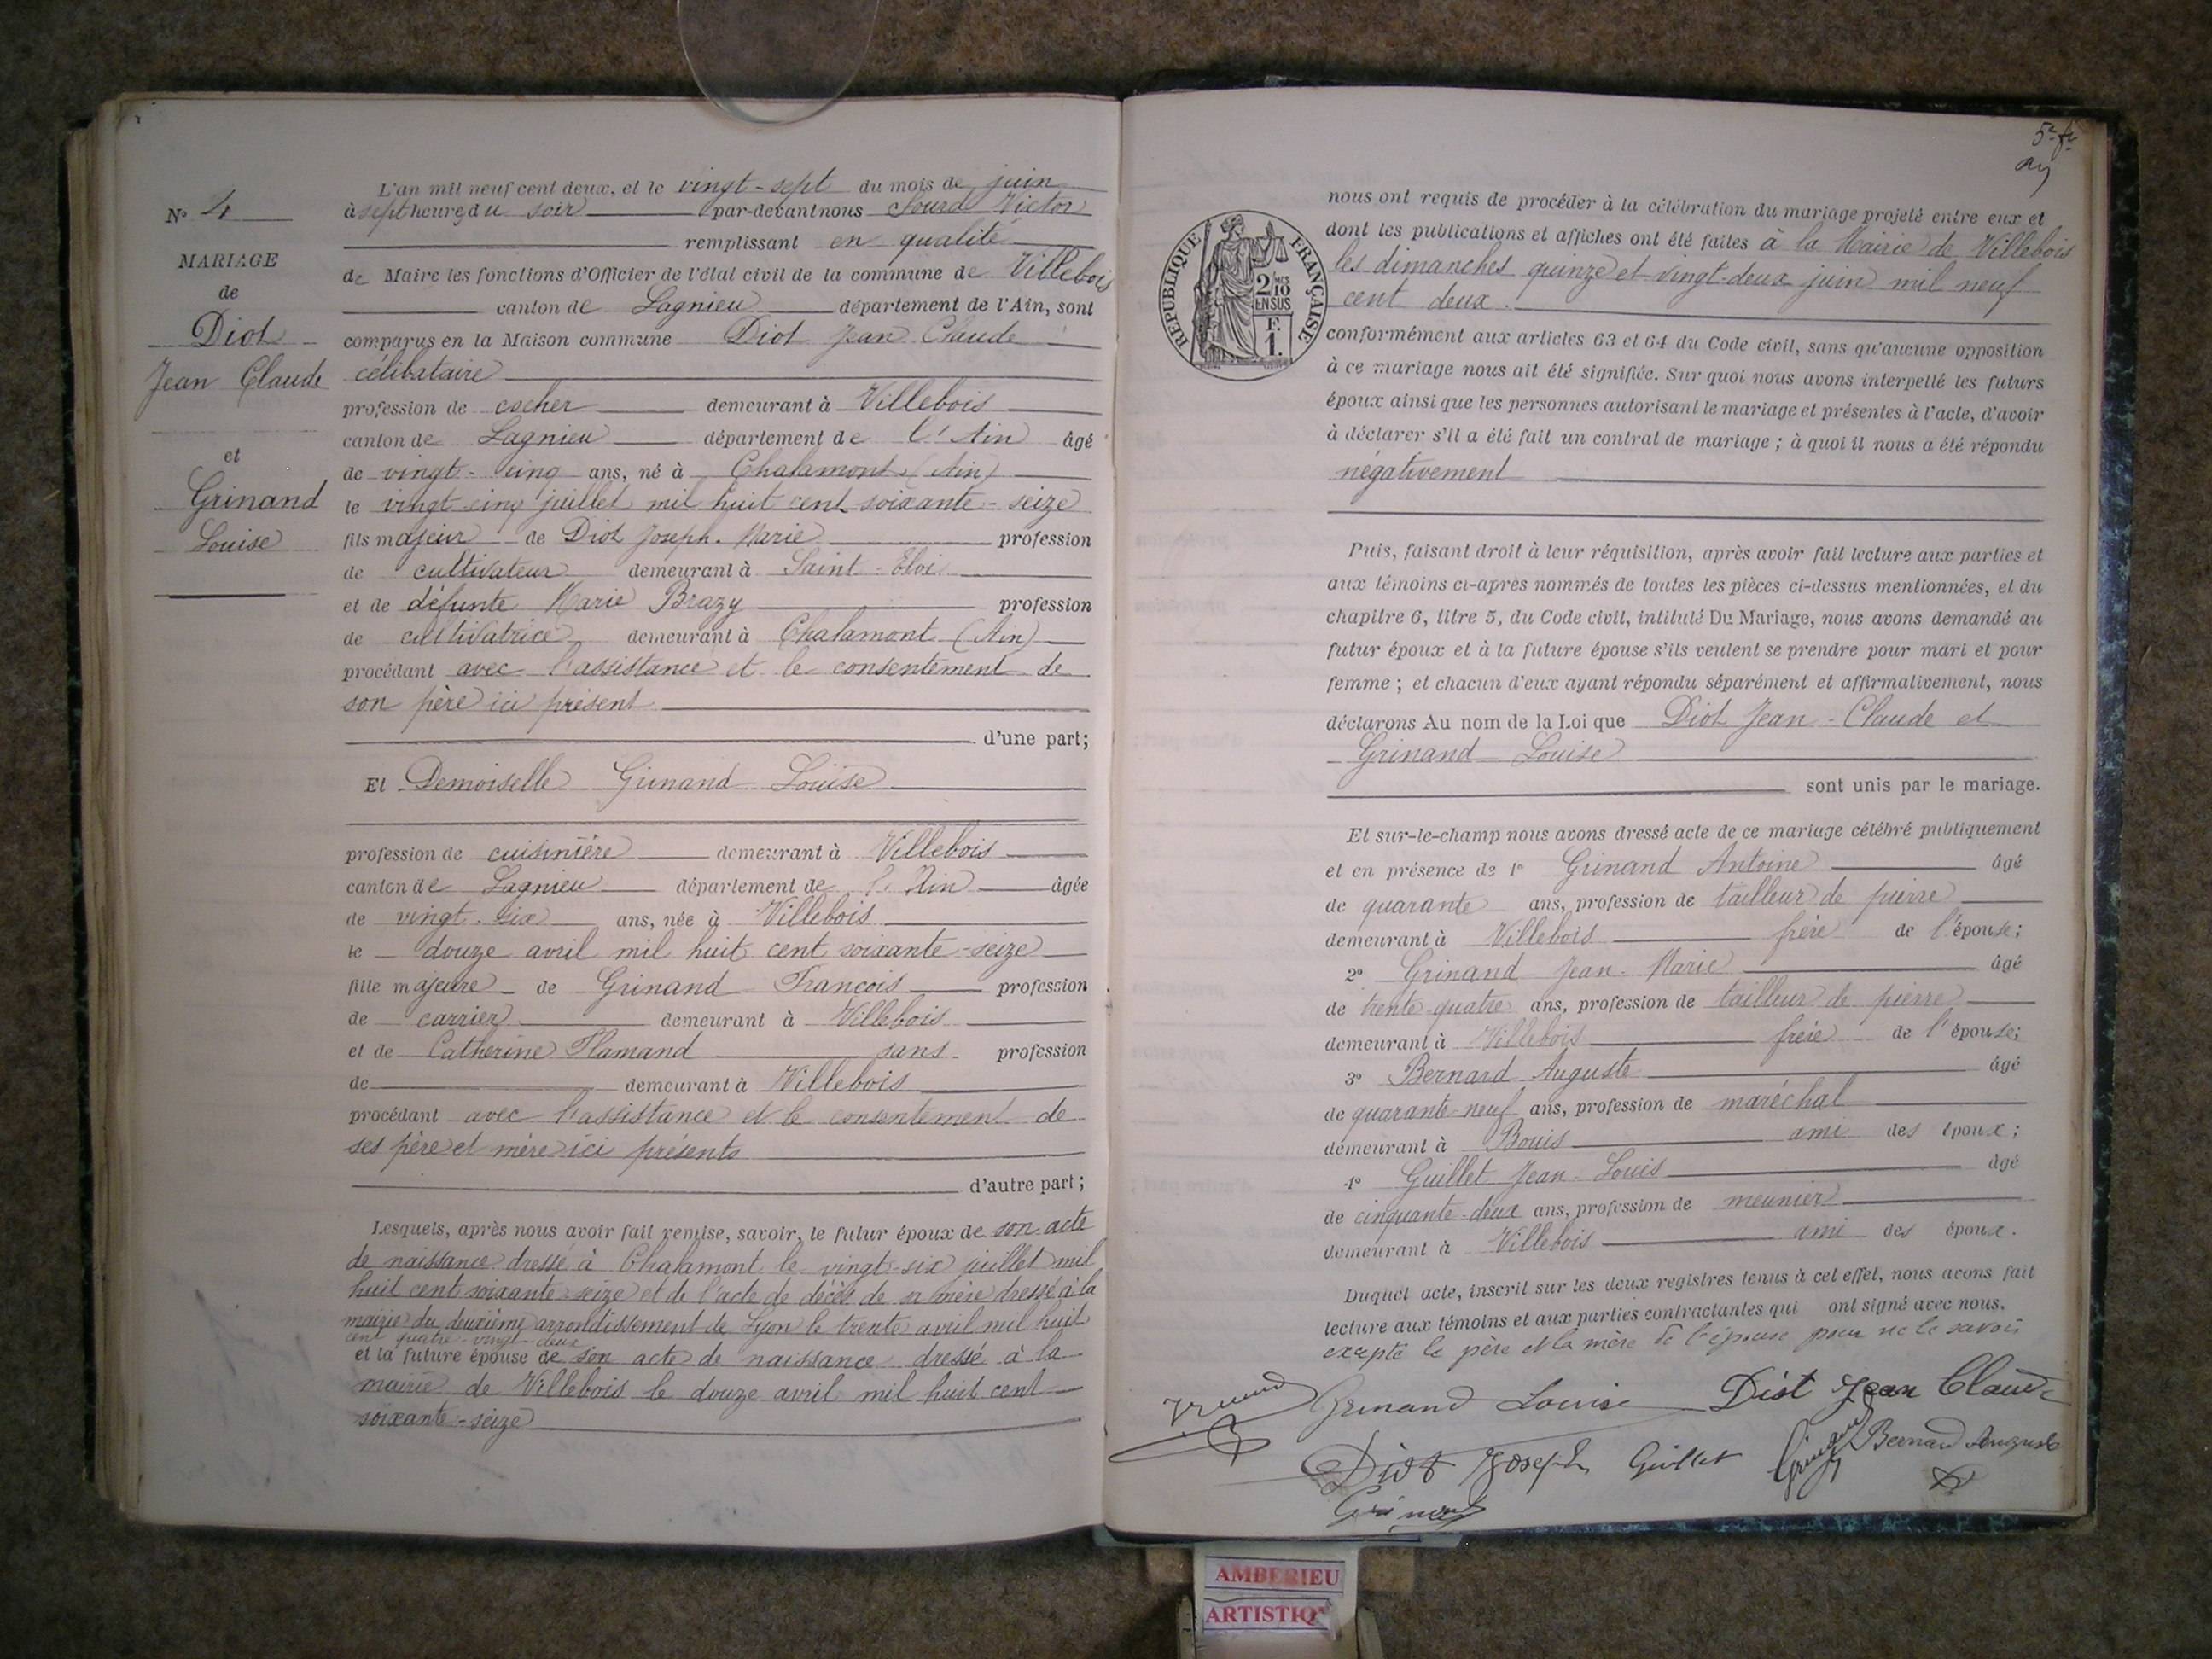 N° 4
MARIAGE
de
Diot
Jean Claude
et
Grinand
Louise
L'an mil neuf cent deux, et le vingt-sept du mois de juin
à sept heures du soir par-devant nous Sourd Victor
remplissant en qualité
de Maire les fonctions d'Officier de l'état civil de la commune de Villebois
canton de Lagnieu département de l'Ain, sont
comparus en la Maison commune Diot Jean Claude
célibataire
profession de cocher demeurant à Villebois
canton de Lagnieu département de l'Ain âgé
de vingt-cinq ans, né à Chalamont (Ain)
le vingt-cinq juillet mil huit cent soixante-seize
fils majeur de Diot Joseph-Marie profession
de cultivateur demeurant à Saint-Eloi
et de défunte Marie Brazy profession
de cultivatrice demeurant à Chalamont (Ain)
procédant avec l'assistance et le consentement de
son père ici présent
d'une part;
Et Demoiselle Grinand Louise
profession de cuisinière demeurant à Villebois
canton de Lagnieu département de l'Ain âgée
de vingt-six ans, née à Villebois
le douze avril mil huit cent soixante-seize
fille majeure de Grinand François profession
de carrier demeurant à Villebois
et de Catherine Flamand sans profession
de demeurant à Villebois
procédant avec l'assistance et le consentement de
ses père et mère ici présents
d'autre part;
Lesquels, après nous avoir fait remise, savoir, le futur époux de son acte
de naissance dressé à Chalamont le vingt-six juillet mil
huit cent soixante-seize et de l'acte de décès de sa mère dressé à la
mairie du deuxième arrondissement de Lyon le trente avril mil huit
cent quatre-vingt-deux
et la future épouse de son acte de naissance dressé à la
mairie de Villebois le douze avril mil huit cent
soixante-seize
5e ft
REPUBLIQUE FRANÇAISE
2/10
EN SUS
F.
1.
nous ont requis de procéder à la célébration du mariage projeté entre eux et
dont les publications et affiches ont été faites à la Mairie de Villebois
les dimanches quinze et vingt-deux juin mil neuf
cent deux.
conformément aux articles 63 et 64 du Code civil, sans qu'aucune opposition
à ce mariage nous ait été signifiée. Sur quoi nous avons interpellé les futurs
époux ainsi que les personnes autorisant le mariage et présentes à l'acte, d'avoir
à déclarer s'il a été fait un contrat de mariage; à quoi il nous a été répondu
négativement
Puis, faisant droit à leur réquisition, après avoir fait lecture aux parties et
aux témoins ci-après nommés de toutes les pièces ci-dessus mentionnées, et du
chapitre 6, titre 5, du Code civil, intitulé Du Mariage, nous avons demandé au
futur époux et à la future épouse s'ils veulent se prendre pour mari et pour
femme; et chacun d'eux ayant répondu séparément et affirmativement, nous
déclarons Au nom de la Loi que Diot Jean-Claude et
Grinand Louise
sont unis par le mariage.
Et sur-le-champ nous avons dressé acte de ce mariage célébré publiquement
et en présence de 1° Grinand Antoine âgé
de quarante ans, profession de tailleur de pierre
demeurant à Villebois frère de l'épouse;
2° Grinand Jean-Marie âgé
de trente-quatre ans, profession de tailleur de pierre
demeurant à Villebois frère de l'épouse;
3° Bernard Auguste âgé
de quarante-neuf ans, profession de maréchal
demeurant à Bouis ami des époux;
4° Guillet Jean-Louis âgé
de cinquante-deux ans, profession de meunier
demeurant à Villebois ami des époux.
Duquel acte, inscrit sur les deux registres tenus à cet effet, nous avons fait
lecture aux témoins et aux parties contractantes qui ont signé avec nous,
excepté le père et la mère de l'épouse pour ne le savoir
Grinand Louise Diot Jean Claude
Diot Joseph Guillet Grinand Bernard Auguste
Grinand
AMBERIEU
ARTISTIQ